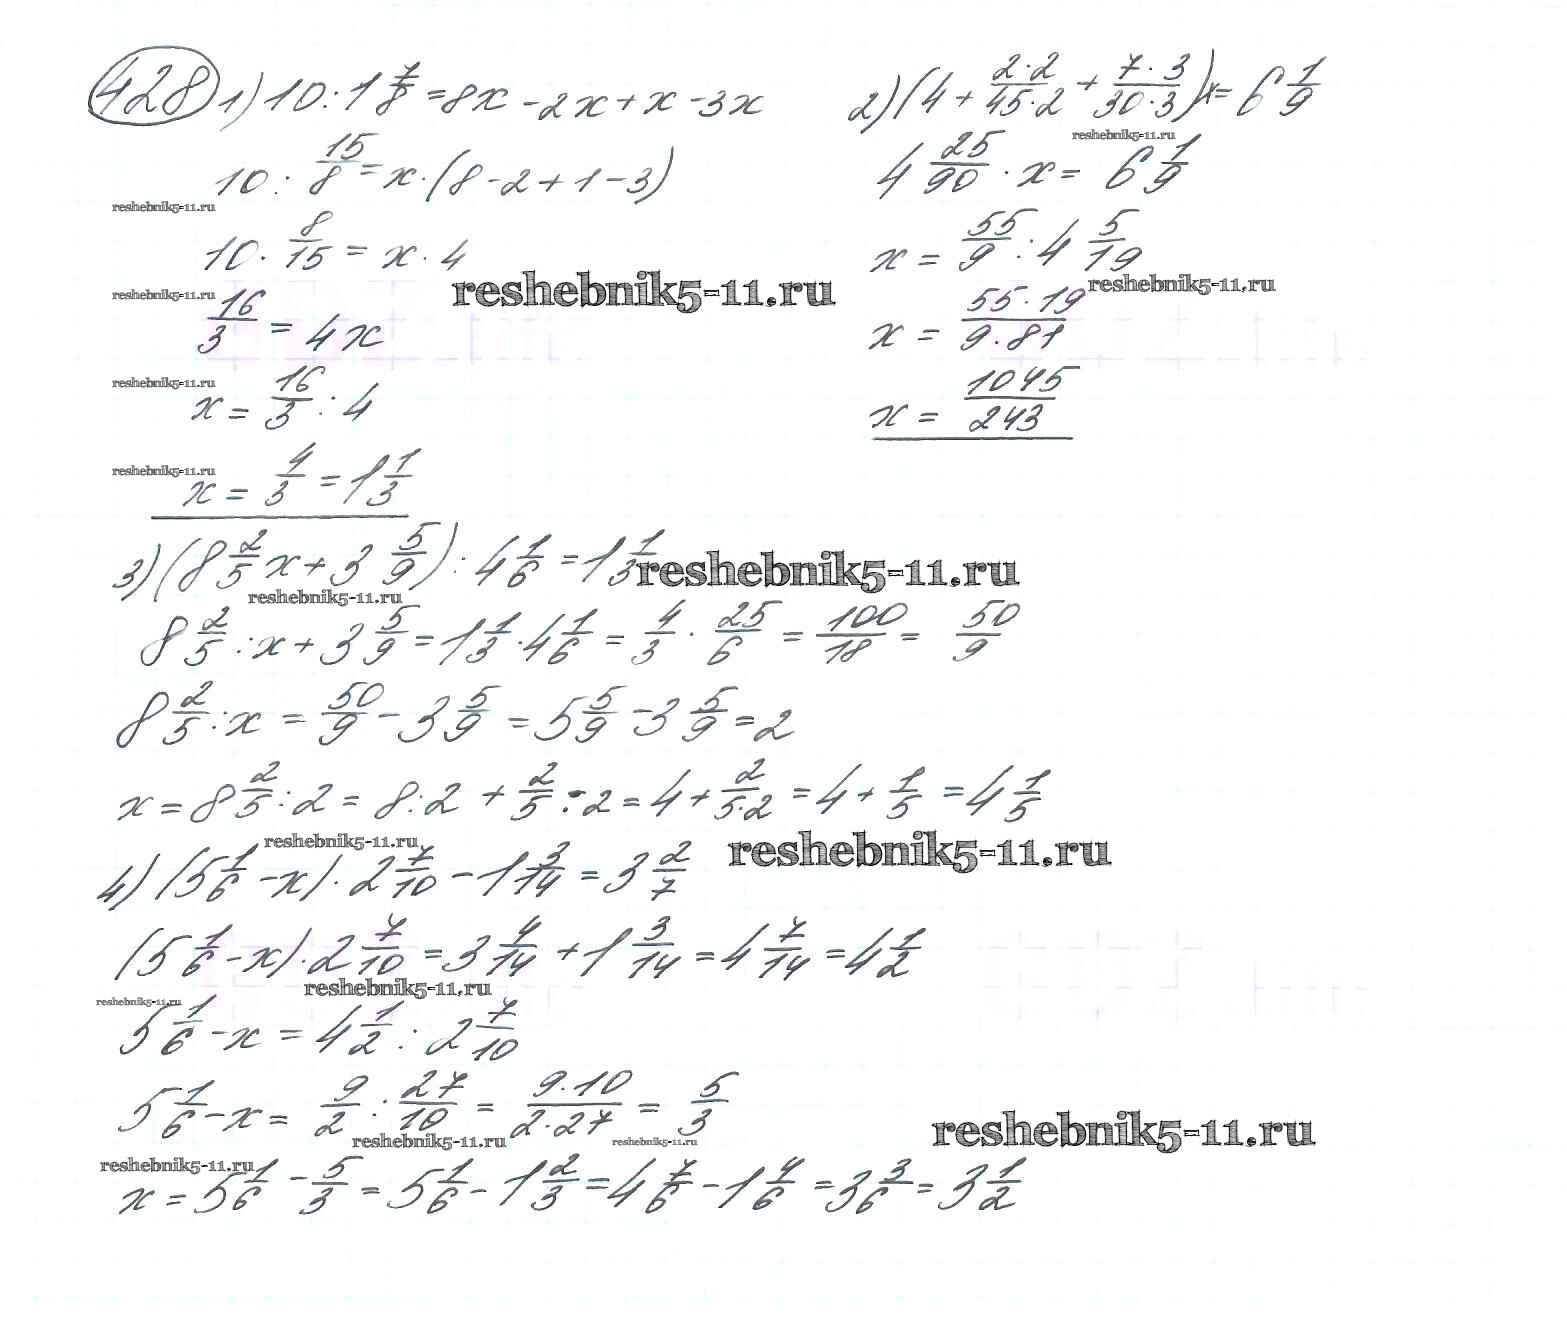 428 1) 10 : 1 7/8 = 8x - 2x + x - 3x
10 : 15/8 = x · (8 - 2 + 1 - 3)
reshebnik5-11.ru
10 · 8/15 = x · 4
reshebnik5-11.ru
reshebnik5-11.ru
16/3 = 4x
reshebnik5-11.ru
x = 16/3 : 4
reshebnik5-11.ru
x = 4/3 = 1 1/3
2) (4 + 2·2/45·2 + 7·3/30·3) x = 6 1/9
reshebnik5-11.ru
4 25/90 · x = 6 1/9
x = 55/9 : 4 5/19
reshebnik5-11.ru
x = 55·19/9·81
x = 1045/243
3) (8 2/5 x + 3 5/9) : 4 1/6 = 1 1/3
reshebnik5-11.ru
reshebnik5-11.ru
8 2/5 : x + 3 5/9 = 1 1/3 · 4 1/6 = 4/3 · 25/6 = 100/18 = 50/9
8 2/5 : x = 50/9 - 3 5/9 = 5 5/9 - 3 5/9 = 2
x = 8 2/5 : 2 = 8 : 2 + 2/5 : 2 = 4 + 2/5·2 = 4 + 1/5 = 4 1/5
reshebnik5-11.ru
reshebnik5-11.ru
4) (5 1/6 - x) · 2 7/10 - 1 3/14 = 3 2/7
(5 1/6 - x) · 2 7/10 = 3 4/14 + 1 3/14 = 4 7/14 = 4 1/2
reshebnik5-11.ru
reshebnik5-11.ru
5 1/6 - x = 4 1/2 : 2 7/10
5 1/6 - x = 9/2 : 27/10 = 9·10/2·27 = 5/3
reshebnik5-11.ru
reshebnik5-11.ru
reshebnik5-11.ru
reshebnik5-11.ru
x = 5 1/6 - 5/3 = 5 1/6 - 1 2/3 = 4 7/6 - 1 4/6 = 3 3/6 = 3 1/2